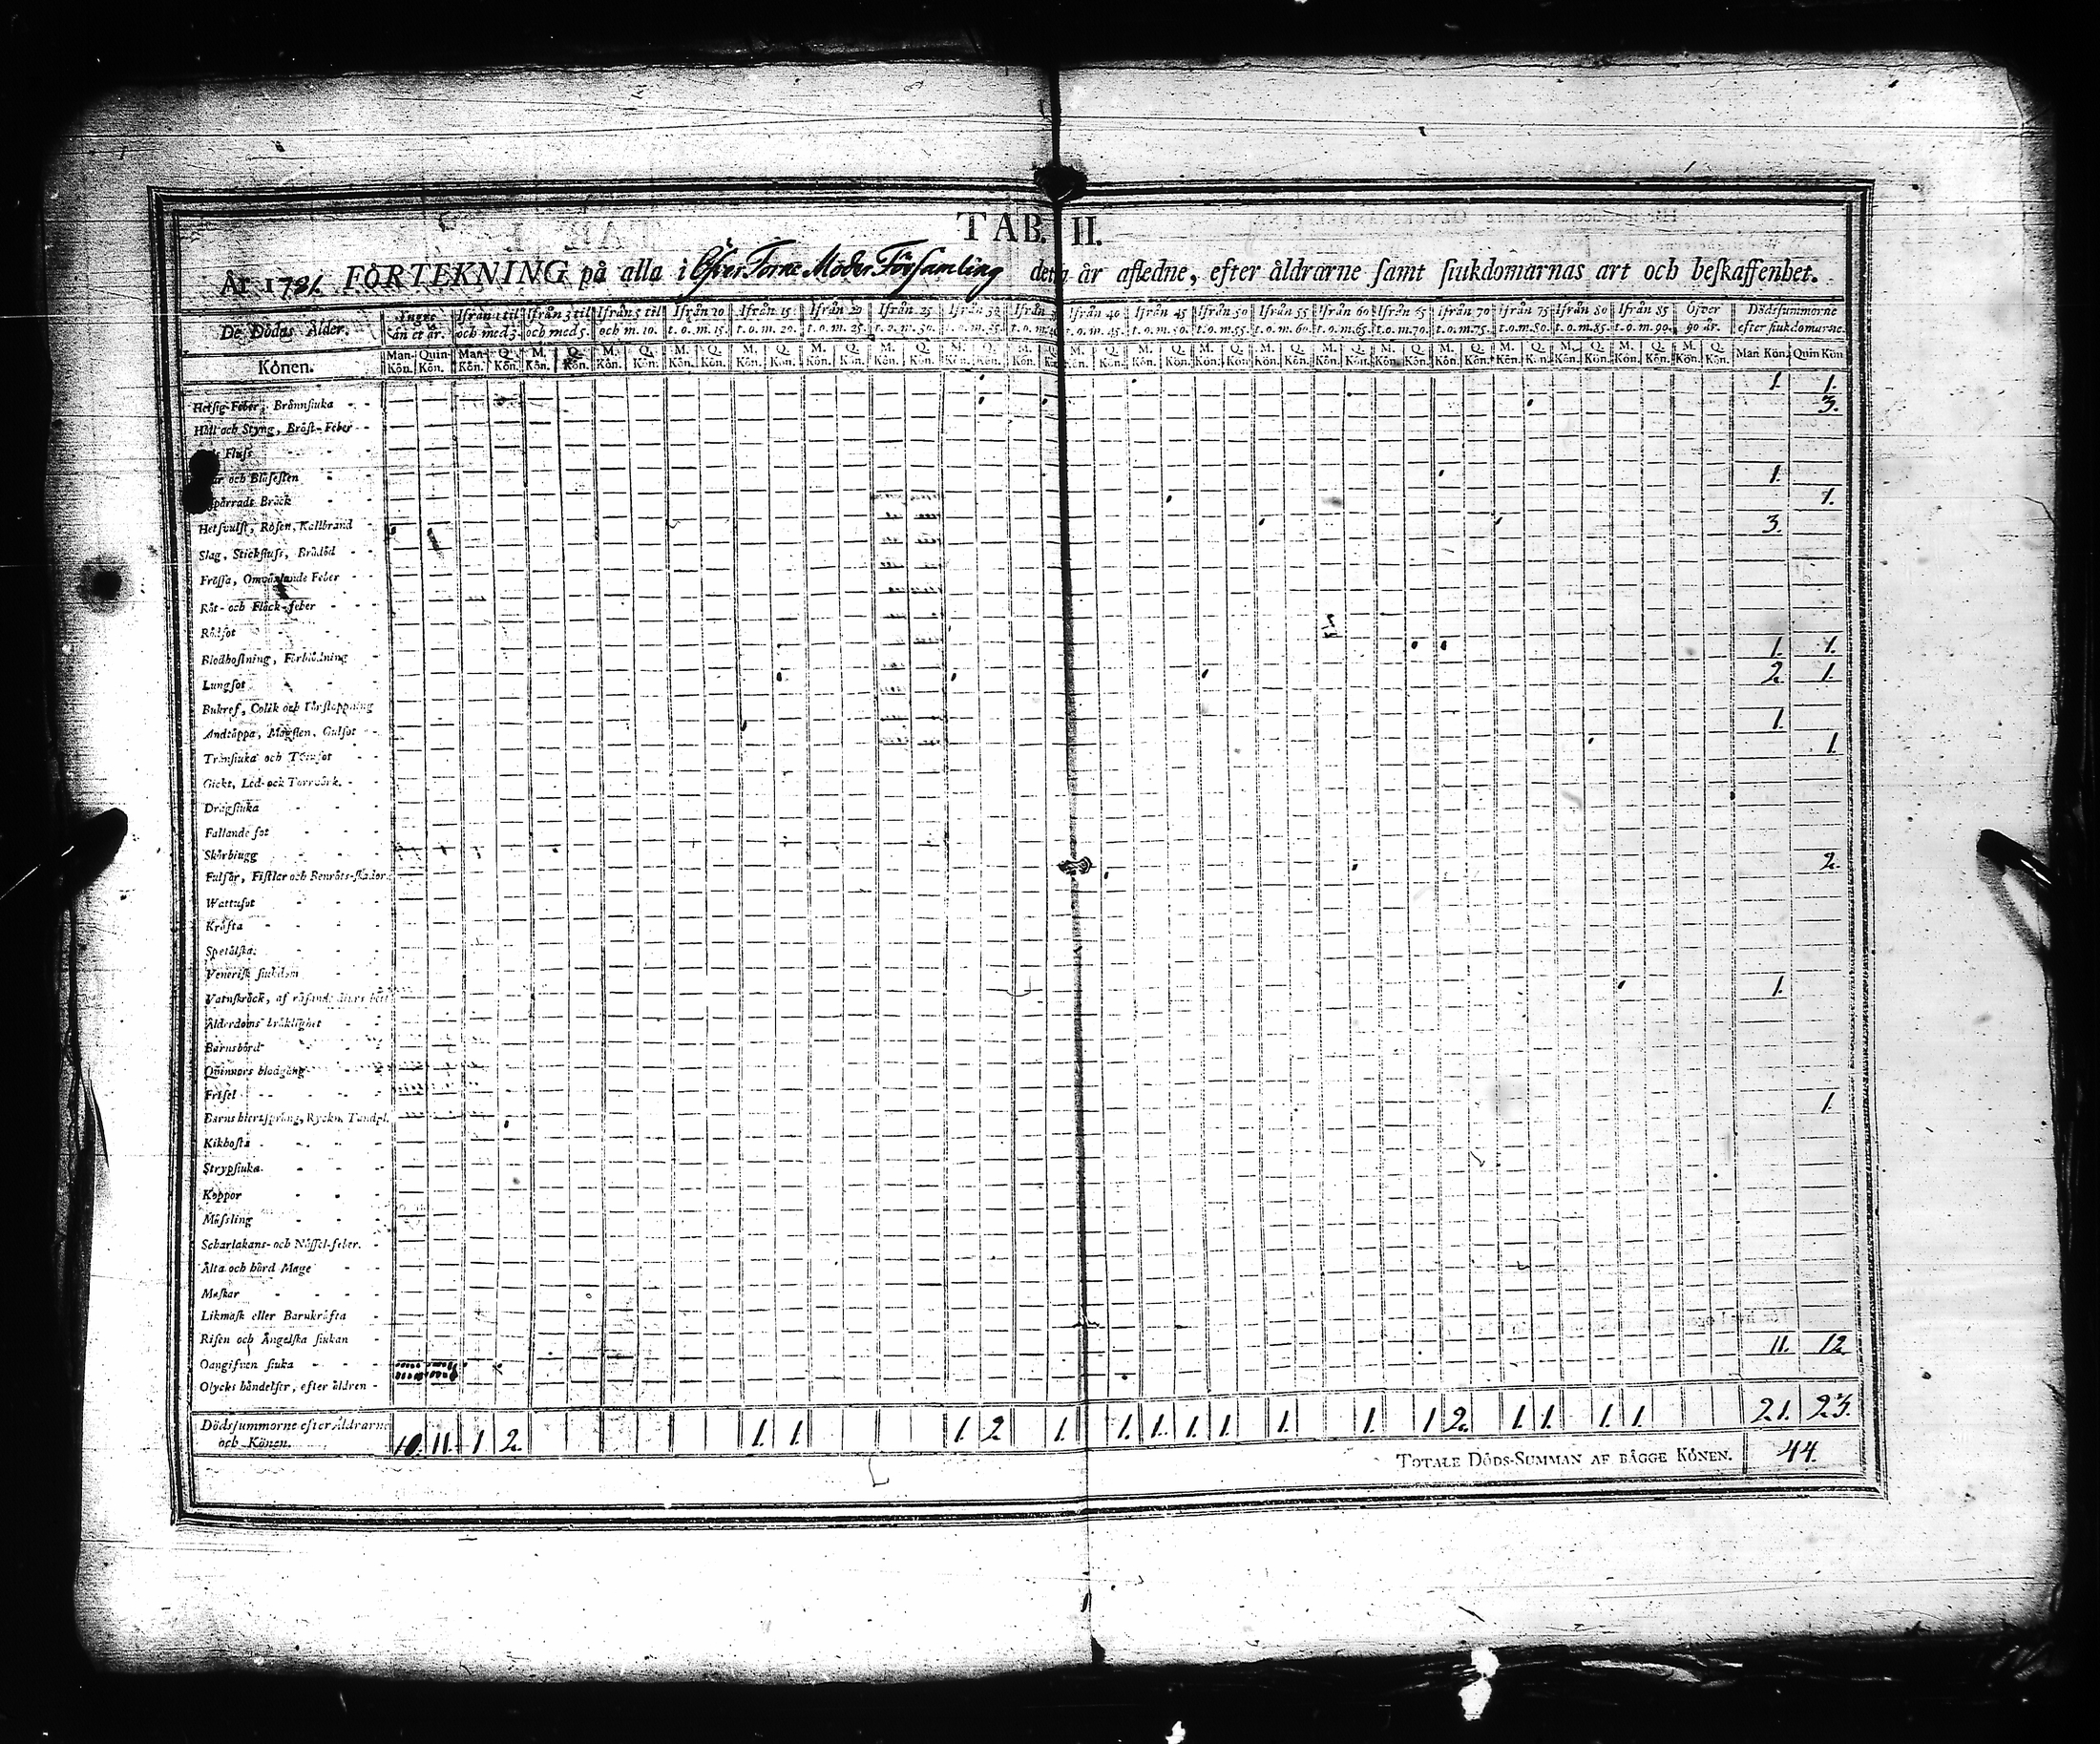 TAB. II.
År 1781. FÖRTEKNING på alla i Öfver Torne Moder Församling detta år afledne, efter åldrarne samt siukdomarnas art och beskaffenhet.
De Dödas Ålder. Yngre än et år. Ifrån 1 til och med 3. Ifrån 3 til och med 5. Ifrån 5 til och m. 10. Ifrån 10 t.o.m. 15. Ifrån 15 t.o.m. 20. Ifrån 20 t.o.m. 25. Ifrån 25 t.o.m. 30. Ifrån 30 t.o.m. 35. Ifrån t.o.m. Ifrån 40 t.o.m. 45. Ifrån 45 t.o.m. 50. Ifrån 50 t.o.m. 55. Ifrån 55 t.o.m. 60. Ifrån 60 t.o.m. 65. Ifrån 65 t.o.m. 70. Ifrån 70 t.o.m. 75. Ifrån 75 t.o.m. 80. Ifrån 80 t.o.m. 85. Ifrån 85 t.o.m. 90. Öfver 90 år. Dödssummorne efter siukdomarne.
Könen. Man-Kön. Quin-Kön. Man-Kön. Q. Kön. M. Kön. Q. Kön. M. Kön. Q. Kön. M. Kön. Q. Kön. M. Kön. Q. Kön. M. Kön. Q. Kön. M. Kön. Q. Kön. M. Kön. Q. Kön. M. Kön. M. Kön. Q. Kön. M. Kön. Q. Kön. M. Kön. Q. Kön. M. Kön. Q. Kön. M. Kön. Q. Kön. M. Kön. Q. Kön. M. Kön. Q. Kön. M. Kön. Q. Kön. M. Kön. Q. Kön. M. Kön. Q. Kön. M. Kön. Q. Kön. Man Kön. Quin Kön.
Hetsig Feber, Brännsiuka 1. 1.
Håll och Styng, Bröst-Feber 3.
Fluss
och Blåsesten
Bråck 1.
Hetsvulst, Rosen, Kallbrand 1.
Slag, Stickfluss, Brådöd 3.
Frossa, Omväxlande Feber
Röt- och Fläck-feber
Rödsot
Blodhostning, Förblödning
Lungsot 1. 1.
Bukref, Colik och Förstoppning 2. 1.
Andtäppa, Mögsten, Gulsot
Trånsiuka och Törrsot 1.
Gickt, Led- och Torrvärk. 1.
Dragsiuka
Fallande sot
Skörbiugg
Fulsår, Fistlar och Benröts-skador
Wattusot 2.
Kräfta
Spetälska
Venerisk siukdom
Vatuskräck, af rasande diurs bett
Ålderdoms bräklighet 1.
Barnsbörd
Qvinnors blodgång
Frisel
Barns hiertsprång, Ryckn. Tandpl.
Kikhosta 1.
Strypsiuka
Koppor
Mässling
Scharlakans- och Nässel-feber.
Älta och hård Mage
Maskar
Likmask eller Barnkräfta
Risen och Ängelska siukan
Oangifven siuka 11. 12
Olycks händelser, efter äldren
Dödssummorne efter Åldrarne och Könen. 10 11. 1 2. 1. 1. 1. 2 1. 1. 1. 1. 1. 1. 1. 1 2. 1. 1. 1. 1. 21. 23.
TOTALE DÖDS-SUMMAN AF BÄGGE KÖNEN. 44.